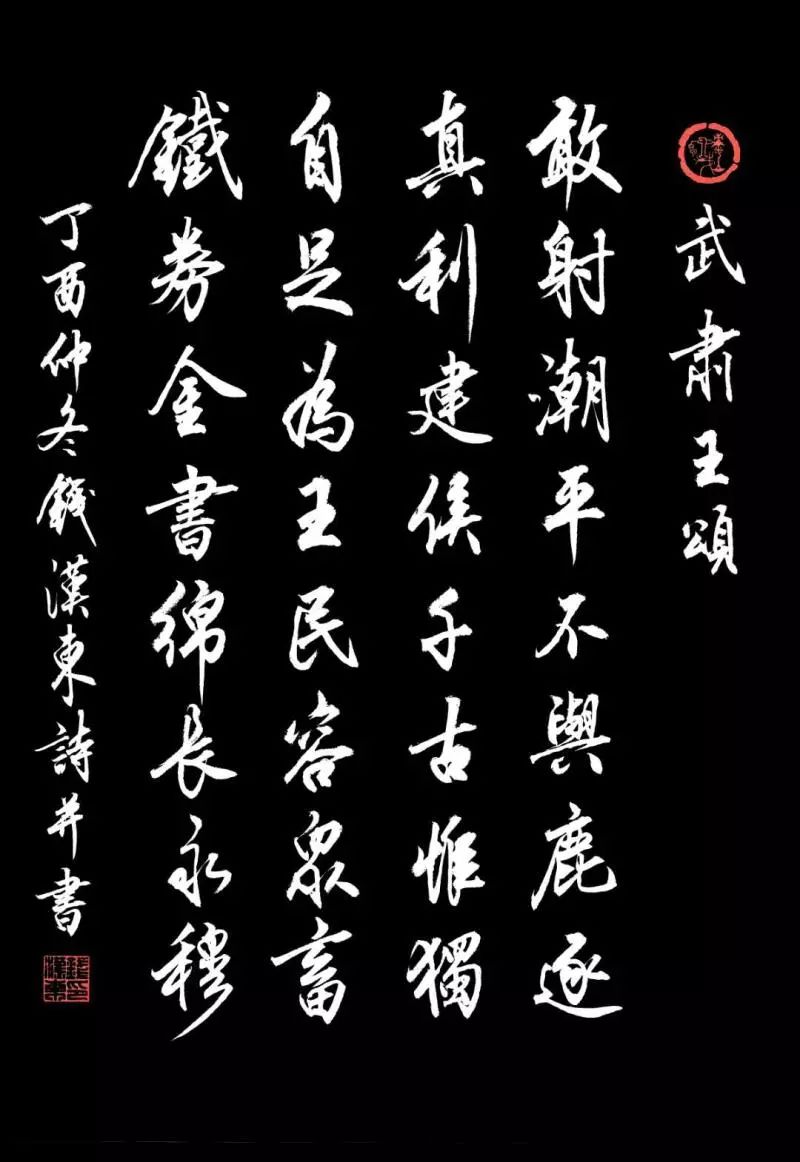 武肅王頌
敢射潮平不與鹿逐
真利建侯千古惟獨
自足為王民容眾畜
鐵券金書綿長永穆
丁酉仲冬錢漢東詩并書